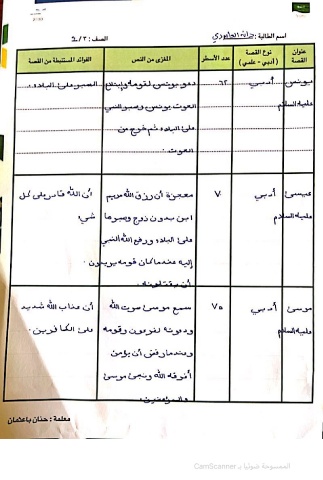 اسم الطالبة :
الصف : ٢/٢
عنوان القصة
نوع القصة (أدبي - علمي)
عدد الأسطر
المغزى من النص
الفوائد المستنبطة من القصة
يونس عليه السلام
أدبي
٦٢
دعو يونس لقومه وابتلاع
الحوت يونس وصبر النبي
على البلاء ثم خرج من
الحوت.
الصبر على البلاء.
عيسى عليه السلام
أدبي
٧٠
معجزة أن رزق الله مريم
ابن بدون زوج وصبرها
على البلاء ورفع الله النبي
إليه عندما كان قومه يريدون
أن يقتلونه.
أن الله قادر على كل
شيء
موسى عليه السلام
أدبي
٧٥
سمع موسى صوت الله
ودعوته لفرعون وقومه
وعندما رفض أن يؤمن
أغرقه الله ونجى موسى
والمؤمنين.
أن عذاب الله شديد
على الكافرين.
معلمة : حنان باعثمان
الممسوحة ضوئيا بـ CamScanner